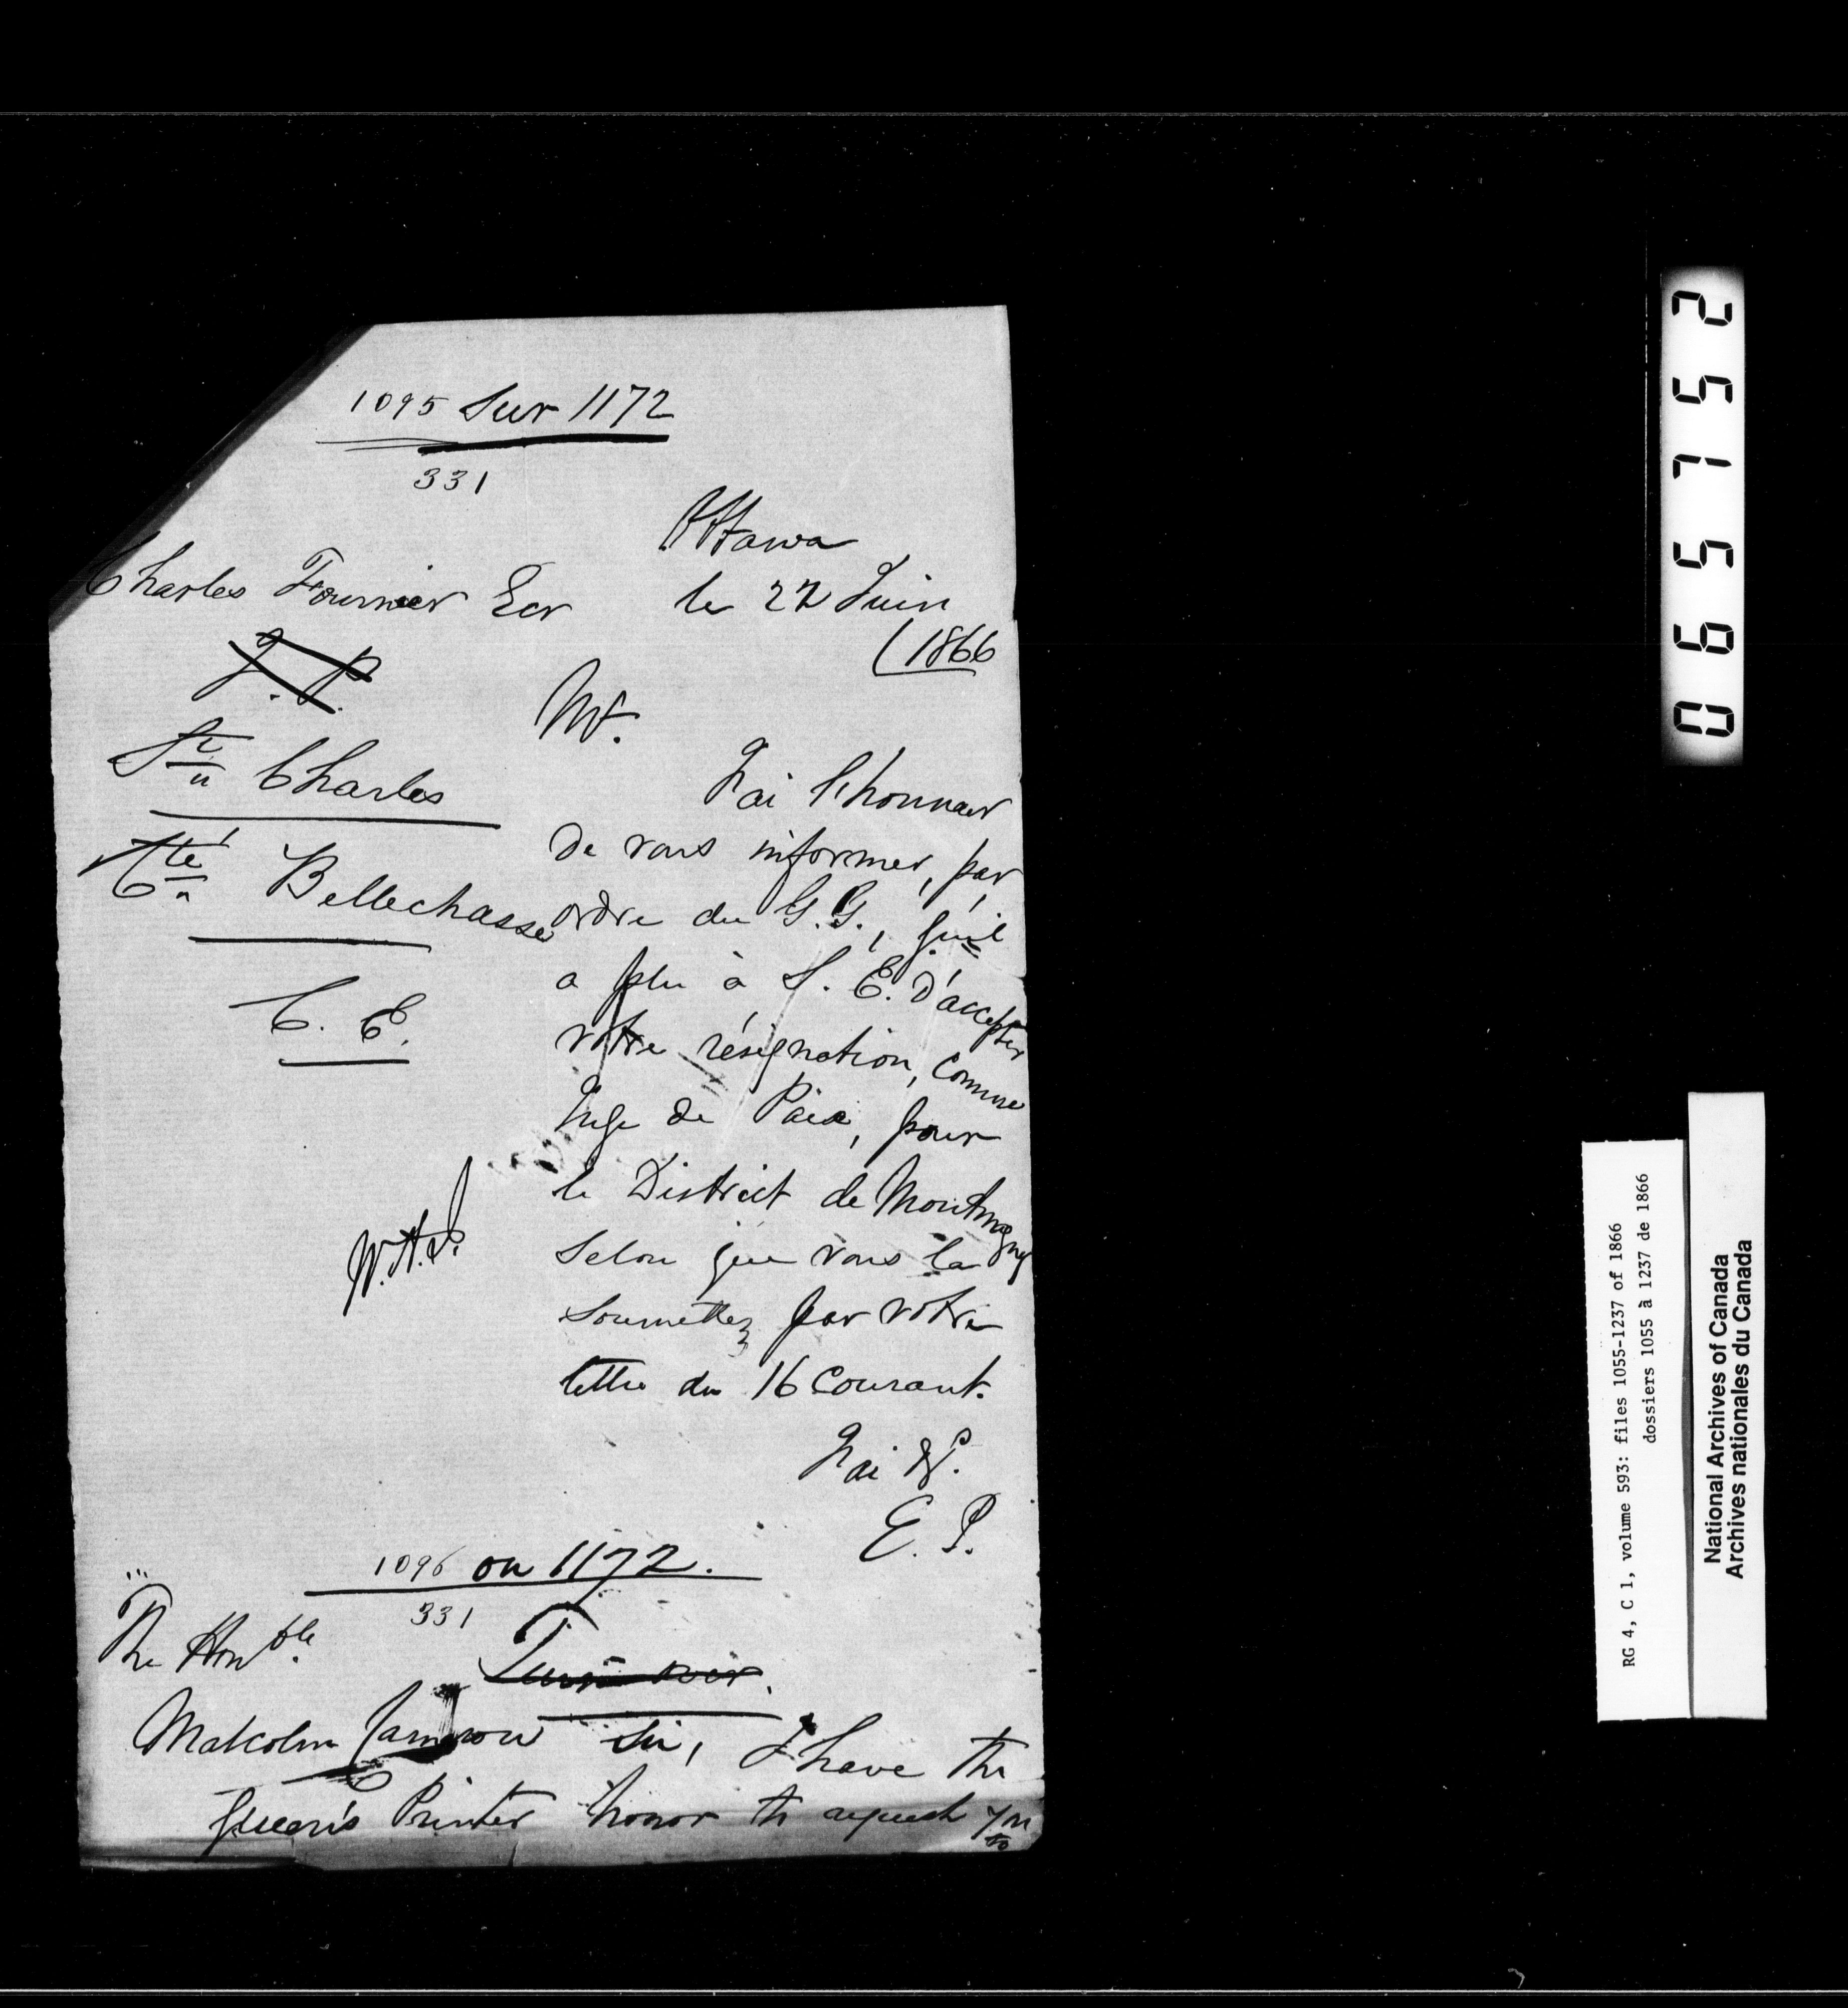 1095 Sur 1172
331
Ottawa
Charles Fournier Ecr
le 22 Juin
(1866
J. P.
Mr.
Ste Charles
J'ai l'honneur
de vous informer, par
Cté Bellechasse
ordre du G. G., qu'il
a plu à S. E. d'accepter
C. E.
votre résignation, comme
Juge de Paix, pour
le District de Montmagny
selon que vous la
soumettez par votre
lettre du 16 Courant.
J'ai &c.
E. P.
1096 on 1172.
331
The Honble.
Malcolm Cameron Sir, I have the
Queen's Printer honor to request you
to
065752
RG 4, C 1, volume 593: files 1055-1237 of 1866
dossiers 1055 à 1237 de 1866
National Archives of Canada
Archives nationales du Canada